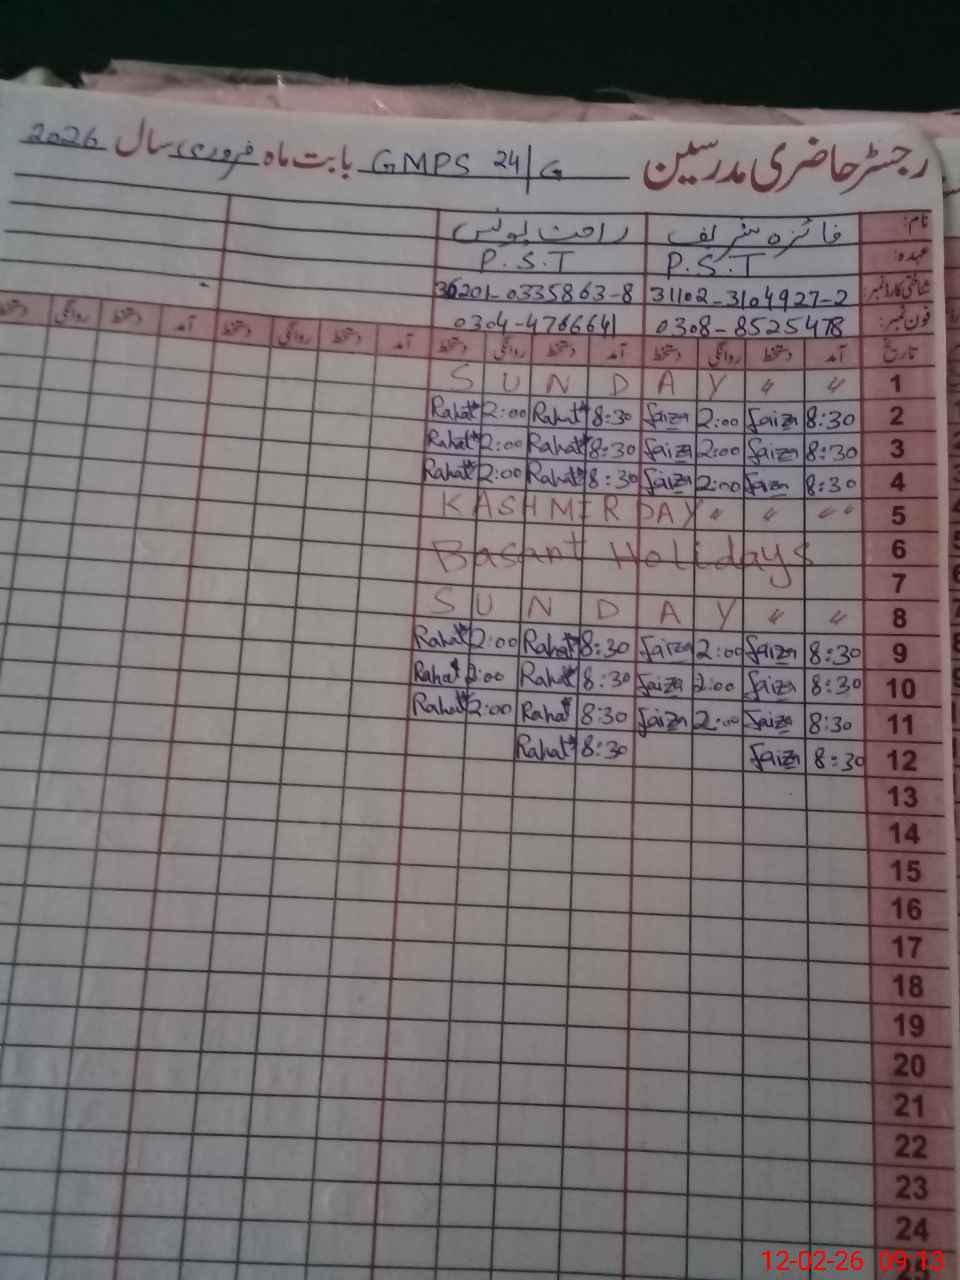 رجسٹر حاضری مدرسین GMPS 24/G بابت ماہ فروری سال 2026
نام: فائزہ شریف راحت یونس
عہدہ: P.S.T P.S.T
شناختی کارڈ نمبر 31102-3104927-2 36201-0335863-8
فون نمبر: 0308-8525478 0304-4766641
تاریخ آمد دستخط روانگی دستخط آمد دستخط روانگی دستخط آمد دستخط روانگی دستخط آمد دستخط روانگی دستخط
1 S U N D A Y " "
2 8:30 Faiza 2:00 Faiza 8:30 Rahat 2:00 Rahat
3 8:30 Faiza 2:00 Faiza 8:30 Rahat 2:00 Rahat
4 8:30 Faiza 2:00 Faiza 8:30 Rahat 2:00 Rahat
5 KASHMIR DAY " " " "
6 Basant Holidays
7
8 S U N D A Y " "
9 8:30 Faiza 2:00 Faiza 8:30 Rahat 2:00 Rahat
10 8:30 Faiza 2:00 Faiza 8:30 Rahat 2:00 Rahat
11 8:30 Faiza 2:00 Faiza 8:30 Rahat 2:00 Rahat
12 8:30 Faiza 8:30 Rahat
13
14
15
16
17
18
19
20
21
22
23
24
25
12-02-26 09:13